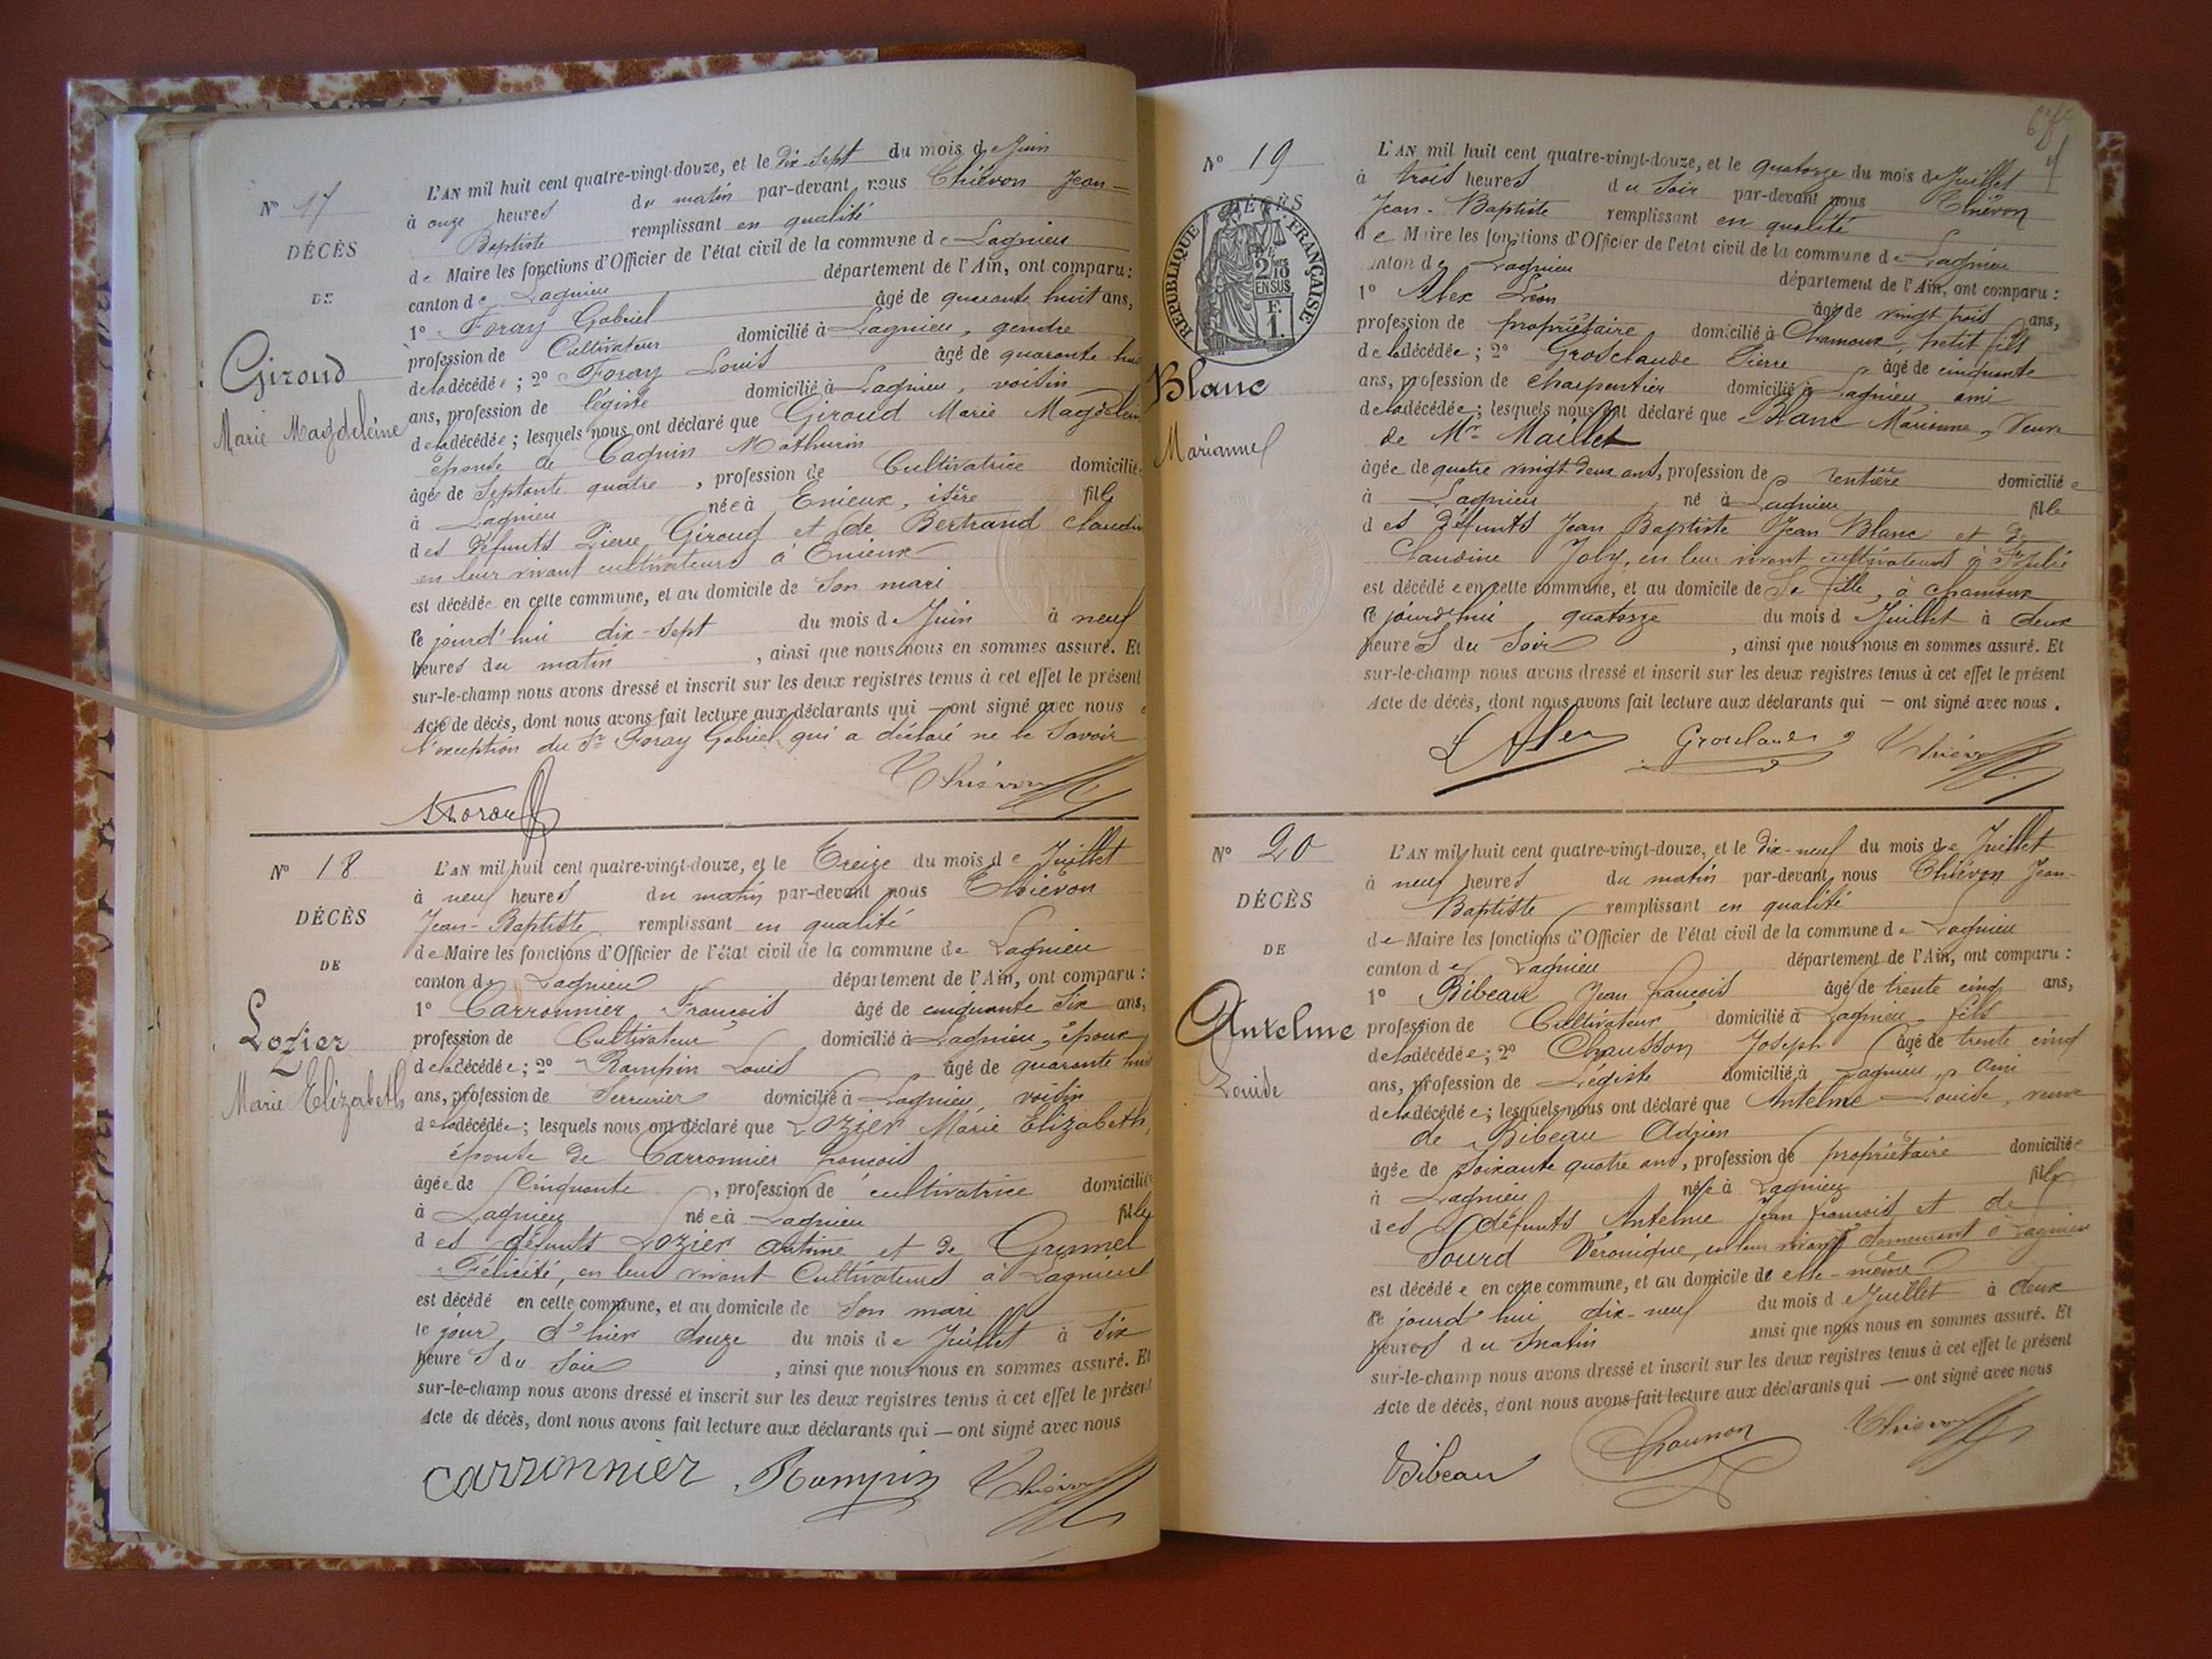 N° 17
DÉCÈS
DE
Giroud
Marie Magdeleine
L'AN mil huit cent quatre-vingt-douze, et le Dix-Sept du mois de Juin
à onze heures du matin par-devant nous Thiévon Jean-
Baptiste remplissant en qualité
de Maire les fonctions d'Officier de l'état civil de la commune de Lagnieu
canton de Lagnieu département de l'Ain, ont comparu :
1° Foray Gabriel âgé de quarante huit ans,
profession de Cultivateur domicilié à Lagnieu, gendre
de la décédée ; 2° Foray Louis âgé de quarante
ans, profession de légiste domicilié à Lagnieu, voisin
de la décédée ; lesquels nous ont déclaré que Giroud Marie Magdelein
épouse de Caguin Mathurin
âgée de Septante quatre , profession de Cultivatrice domicilié
à Lagnieu née à Enieux, isère fille
des défunts Pierre Giroud et de Bertrand Claudin
en leur vivant cultivateurs à Enieux
est décédée en cette commune, et au domicile de Son mari
ce jourd'hui dix-sept du mois de Juin à neuf
heures du matin , ainsi que nous nous en sommes assuré. Et
sur-le-champ nous avons dressé et inscrit sur les deux registres tenus à cet effet le présent
Acte de décès, dont nous avons fait lecture aux déclarants qui — ont signé avec nous
l'exception du Sr Foray Gabriel qui a déclaré ne le Savoir
Thiévon
N° 18
DÉCÈS
DE
Lozier
Marie Elizabeth
L'AN mil huit cent quatre-vingt-douze, et le Treize du mois de Juillet
à neuf heures du matin par-devant nous Thiévon
Jean-Baptiste remplissant en qualité
de Maire les fonctions d'Officier de l'état civil de la commune de Lagnieu
canton de Lagnieu département de l'Ain, ont comparu :
1° Carronnier François âgé de cinquante Six ans,
profession de Cultivateur domicilié à Lagnieu, époux
de la décédée ; 2° Rampin Louis âgé de quarante huit
ans, profession de Serrurier domicilié à Lagnieu, voisin
de la décédée ; lesquels nous ont déclaré que Lozier Marie Elizabeth,
épouse de Carronnier françois
âgée de Cinquante , profession de cultivatrice domicilié
à Lagnieu née à Lagnieu fille
des défunts Lozier antime et de Grumel
Félicité, en leur vivant Cultivateurs à Lagnieu
est décédé en cette commune, et au domicile de Son mari
le jour d'hier douze du mois de Juillet à Six
heures du Soir , ainsi que nous nous en sommes assuré. Et
sur-le-champ nous avons dressé et inscrit sur les deux registres tenus à cet effet le présent
Acte de décès, dont nous avons fait lecture aux déclarants qui — ont signé avec nous
carronnier Rampin Thiévon
N° 19
DÉCÈS
RÉPUBLIQUE FRANÇAISE
2/10 EN SUS
F. 1.
Blanc
Marianne
L'AN mil huit cent quatre-vingt-douze, et le quatorze du mois de Juillet
à trois heures du Soir par-devant nous Thiévon
Jean-Baptiste remplissant en qualité
de Maire les fonctions d'Officier de l'état civil de la commune de Lagnieu
canton de Lagnieu département de l'Ain, ont comparu :
1° Alex Léon âgé de vingt trois ans,
profession de propriétaire domicilié à Chamoux, petit fils
de la décédée ; 2° Grosclaude Pierre âgé de cinquante
ans, profession de charpentier domicilié à Lagnieu, ami
de la décédée ; lesquels nous ont déclaré que Blanc Marianne, Veuve
de Mr Maillet
âgée de quatre vingt deux ans, profession de rentière domiciliée
à Lagnieu né à Lagnieu fille
des défunts Jean Baptiste Jean Blanc et de
Claudine Joly, en leur vivant cultivateurs à St Julie
est décédée en cette commune, et au domicile de Sa fille, à Chamoux
ce jourd'hui quatorze du mois de Juillet à deux
heures du Soir , ainsi que nous nous en sommes assuré. Et
sur-le-champ nous avons dressé et inscrit sur les deux registres tenus à cet effet le présent
Acte de décès, dont nous avons fait lecture aux déclarants qui — ont signé avec nous.
L Alex Grosclaude Thiévon
N° 20
DÉCÈS
DE
Antelme
Louise
L'AN mil huit cent quatre-vingt-douze, et le Dix-neuf du mois de Juillet
à neuf heures du matin par-devant nous Thiévon Jean-
Baptiste remplissant en qualité
de Maire les fonctions d'Officier de l'état civil de la commune de Lagnieu
canton de Lagnieu département de l'Ain, ont comparu :
1° Bibeau Jean françois âgé de trente cinq ans,
profession de Cultivateur domicilié à Lagnieu, fils
de la décédée ; 2° Chausson Joseph âgé de trente cinq
ans, profession de Légiste domicilié à Lagnieu, ami
de la décédée ; lesquels nous ont déclaré que Antelme Louise, veuve
de Bibeau Adrien
âgée de soixante quatre ans, profession de propriétaire domiciliée
à Lagnieu née à Lagnieu fille
des défunts Antelme Jean françois et de
Sourd Véronique, en leur vivant demeurant à Lagnieu
est décédée en cette commune, et au domicile de elle-même
ce jourd'hui dix-neuf du mois de Juillet à deux
heures du matin ainsi que nous nous en sommes assuré. Et
sur-le-champ nous avons dressé et inscrit sur les deux registres tenus à cet effet le présent
Acte de décès, dont nous avons fait lecture aux déclarants qui — ont signé avec nous
Bibeau Chausson Thiévon